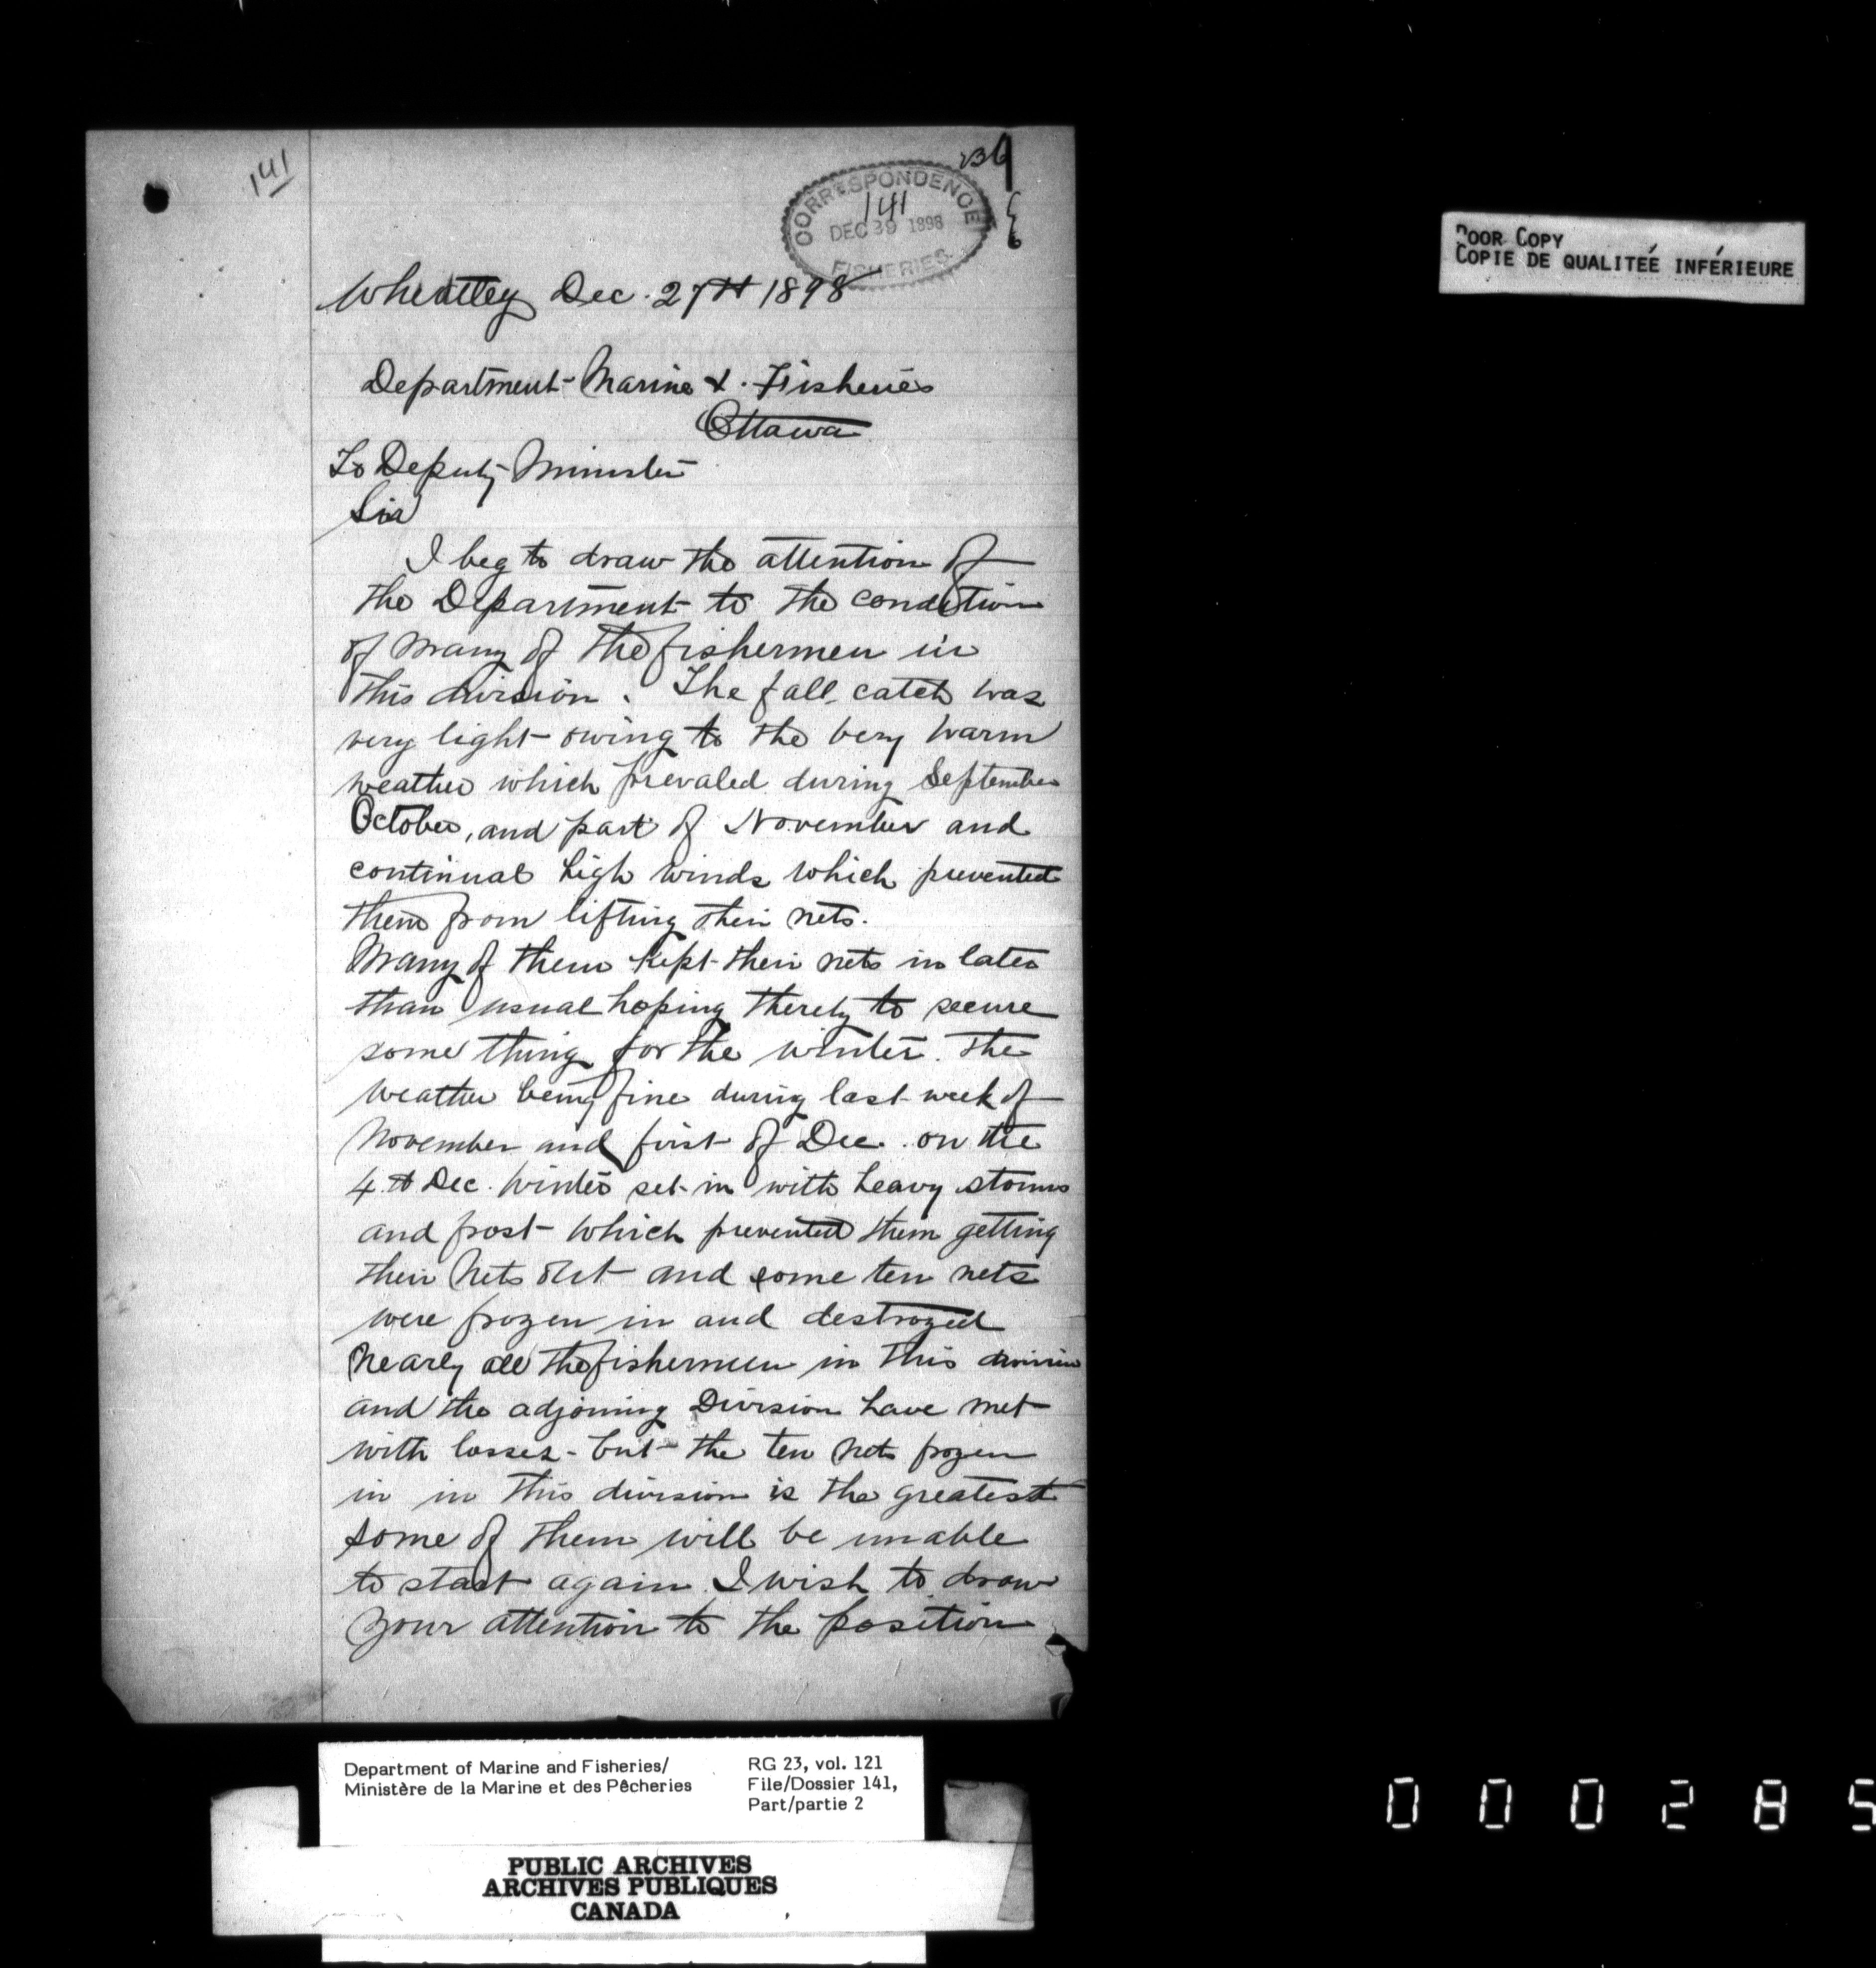 141
236
CORRESPONDENCE
141
DEC 39 1898
FISHERIES
POOR COPY
COPIE DE QUALITEÉ INFÉRIEURE
Wheatley Dec. 27th 1898
Department Marine & Fisheries
Ottawa
To Deputy Minister
Sir
I beg to draw the attention of
the Department to the condition
of many of the fishermen in
this division. The fall catch was
very light owing to the very warm
weather which prevaled during September
October, and part of November and
continual high winds which prevented
them from lifting their nets.
Many of them kept their nets in later
than usual hoping thereby to secure
some thing for the winter. The
weather being fine during last week of
November and first of Dec. on the
4th Dec. Winter set in with heavy storms
and frost which prevented them getting
their nets out and some ten nets
were frozen in and destroyed
Nearly all the fishermen in this division
and the adjoining Division have met
with losses - but the ten nets frozen
in in this division is the greatest
some of them will be unable
to start again. I wish to draw
your attention to the position
Department of Marine and Fisheries/
Ministère de la Marine et des Pêcheries
RG 23, vol. 121
File/Dossier 141,
Part/partie 2
PUBLIC ARCHIVES
ARCHIVES PUBLIQUES
CANADA
000285